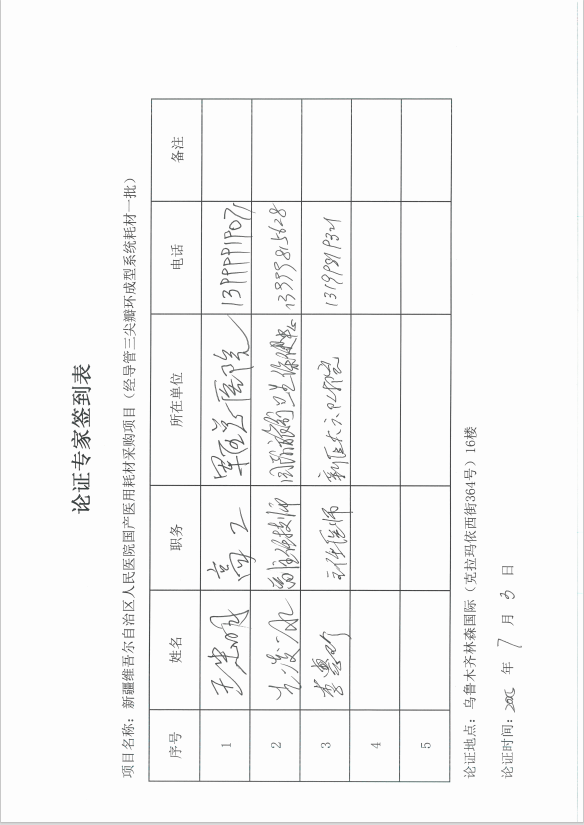 论证专家签到表
项目名称：新疆维吾尔自治区人民医院国产医用耗材采购项目（经导管三尖瓣环成型系统耗材一批）
序号 姓名 职务 所在单位 电话 备注
1 高工 军区总医院
2 副主任技师 13999815628
3 李 主任医师 13199819321
4
5
论证地点：乌鲁木齐林森国际（克拉玛依西街364号）16楼
论证时间： 年 7 月 3 日